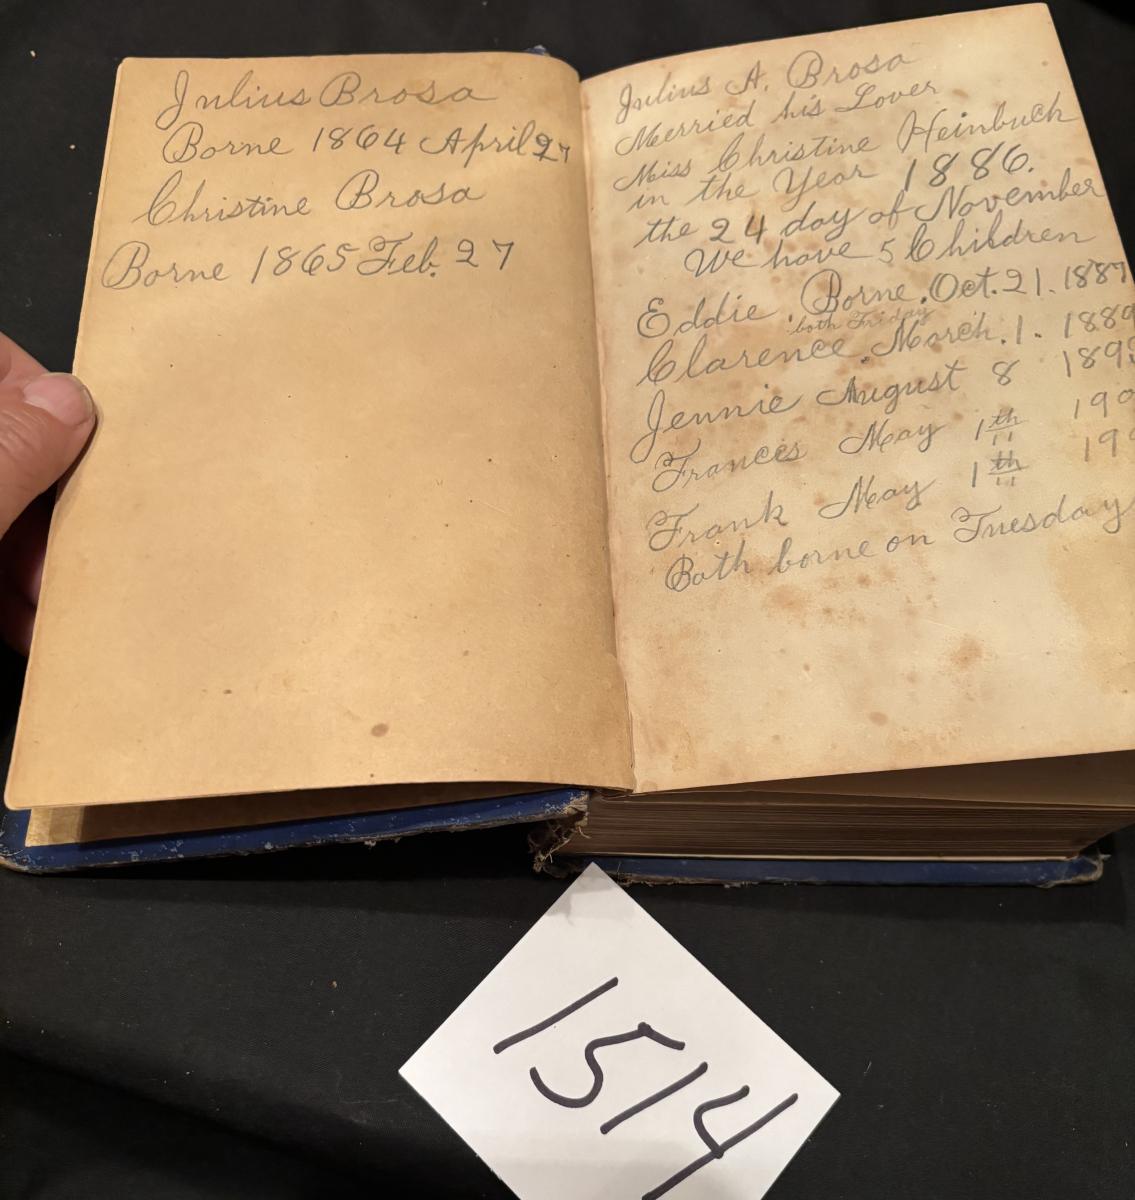 Julius Brosa
Borne 1864 April 27
Christine Brosa
Borne 1865 Feb. 27
Julius A. Brosa
Merried his Lover
Miss Christine Heinbuch
in the Year 1886.
the 24 day of November
We have 5 Children
Eddie. Borne. Oct. 21. 1887
both Friday
Clarence. March. 1. 1889
Jennie August 8 189
Frances May 1th 190
Frank May 1th 19
Both borne on Tuesday
1514